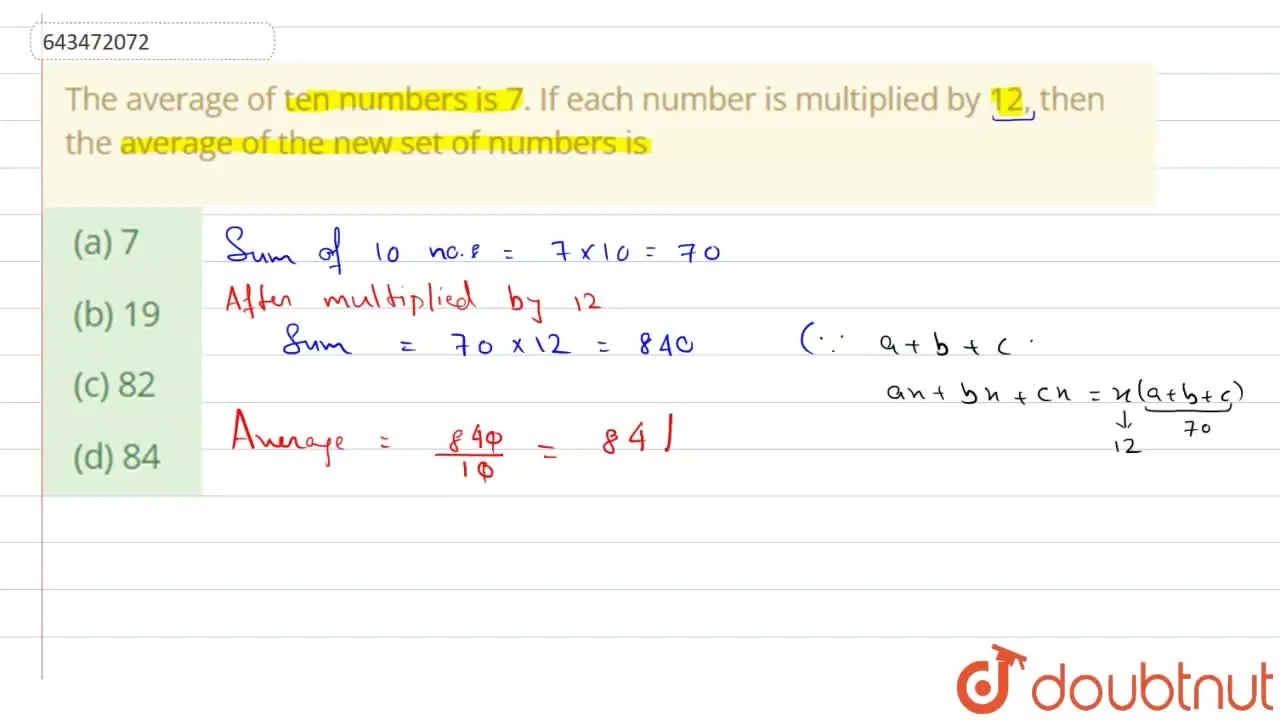 643472072
The average of ten numbers is 7. If each number is multiplied by 12, then
the average of the new set of numbers is
(a) 7
(b) 19
(c) 82
(d) 84
Sum of 10 no.s = 7 × 10 = 70
After multiplied by 12
Sum = 70 × 12 = 840
(∵ a + b + c
ax + bx + cx = x(a+b+c)
↓
12
70
Average = 840/10 = 84
doubtnut